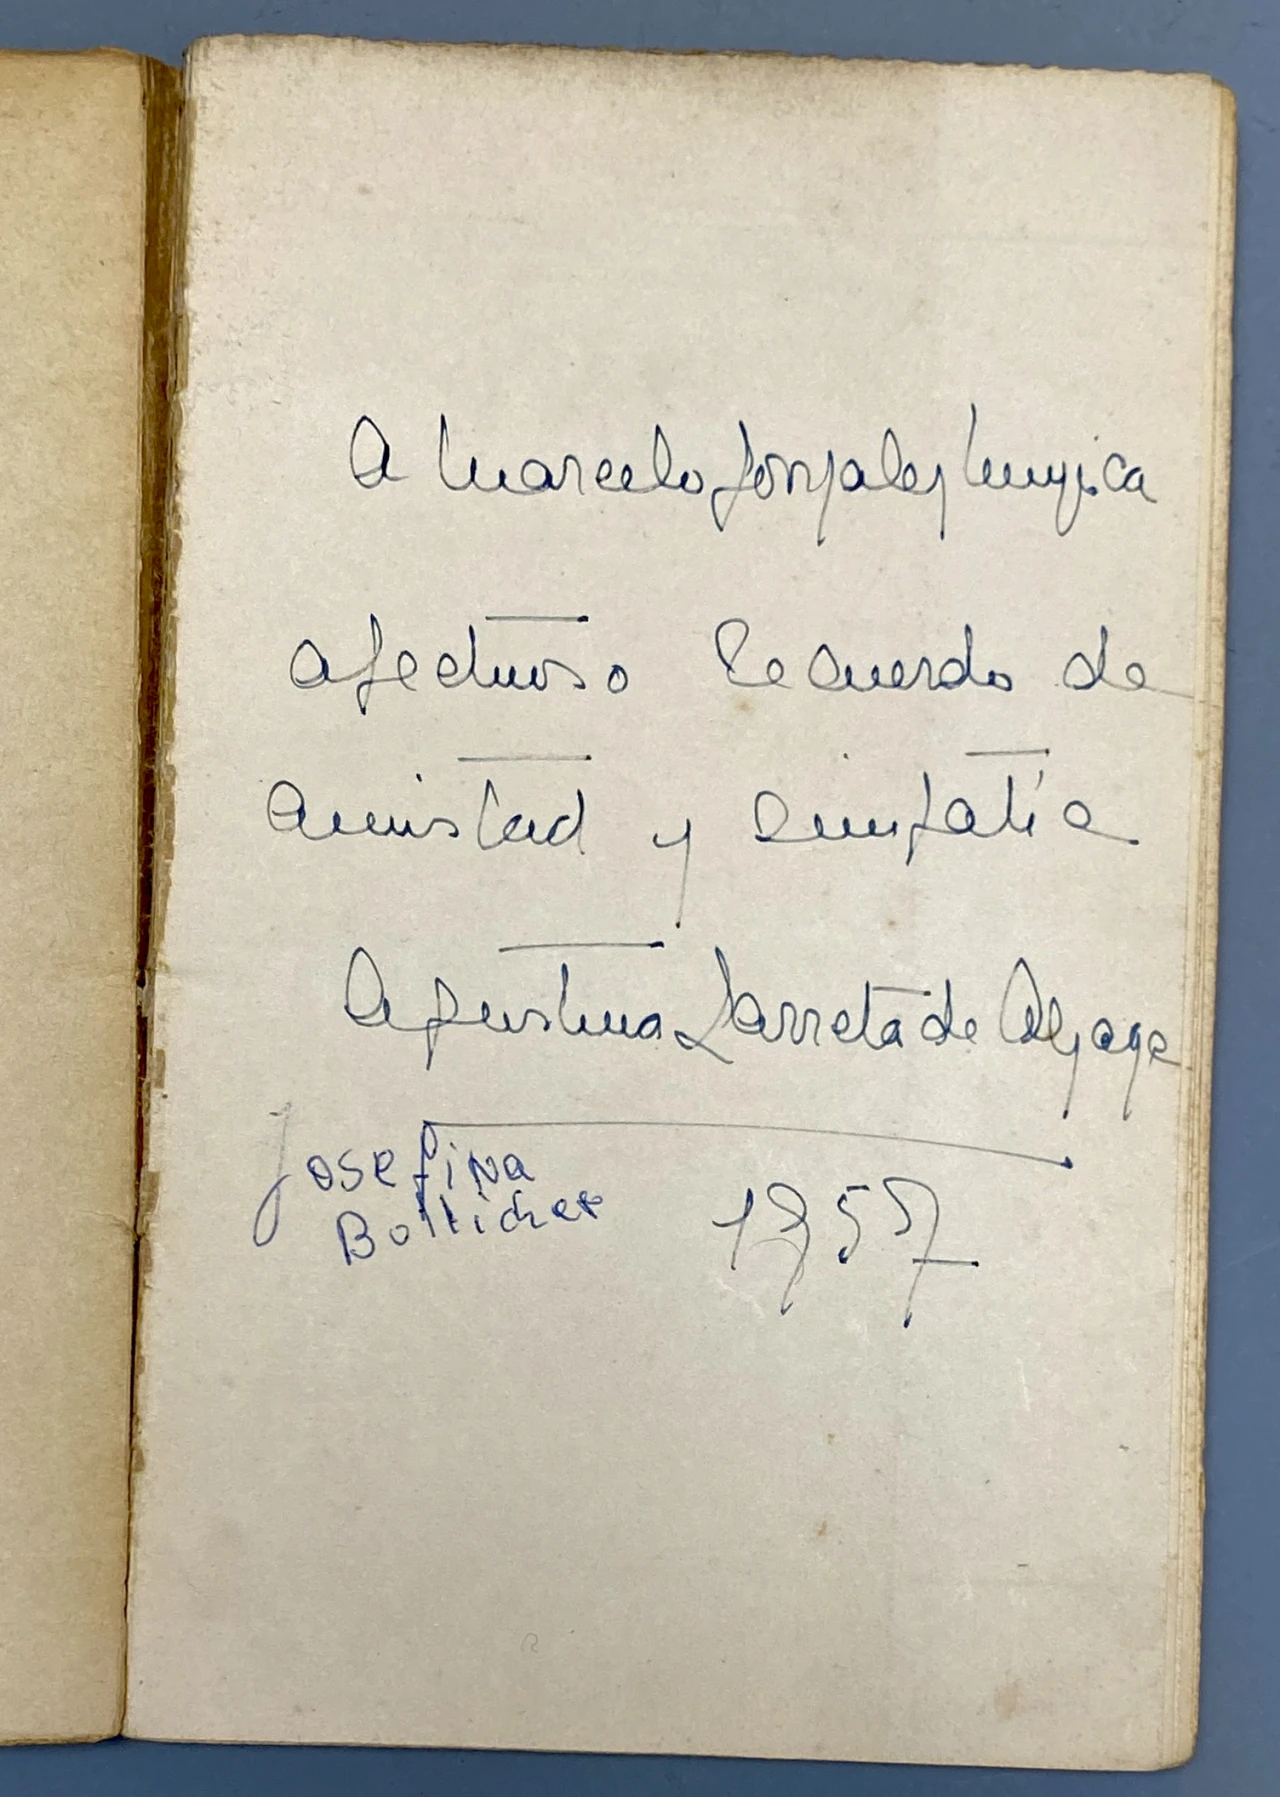 A Marcelo Gonzalez Mugica
afectuoso Recuerdo de
amistad y simpatía
Agustina Larreta de Alzaga
Josefina
Botticher
1957